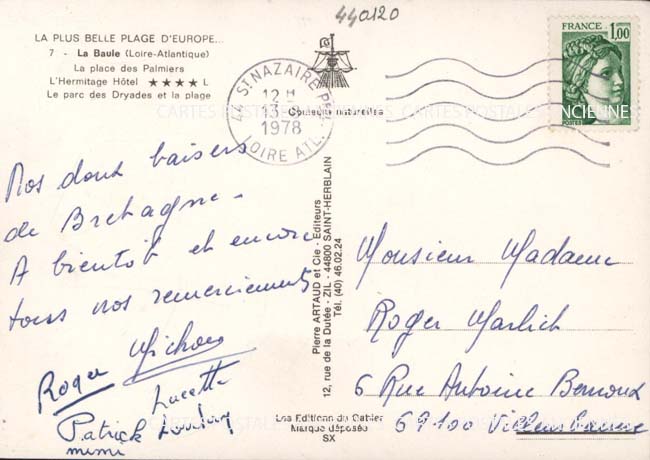 440120
LA PLUS BELLE PLAGE D'EUROPE...
7 - La Baule (Loire-Atlantique)
La place des Palmiers
L'Hermitage Hôtel ★★★★ L
Le parc des Dryades et la plage
44 ST.NAZAIRE
12 H
1978
LOIRE ATL.
Couleurs naturelles
FRANCE 1,00
POSTES
CARTES POSTALES ANCIENNE
Nos doux baisers
de Bretagne -
A bientôt et encore
tous nos remerciements
Roger
Lucette
Patrick
mimi
Pierre ARTAUD et Cie - Editeurs
12, rue de la Dutée - ZIL - 44800 SAINT-HERBLAIN
Tél. (40) 46.02.24
Monsieur Madame
Roger
6 Rue Antoine
69100 Villeurbanne
Les Editions du Gabier
Marque déposée
SX